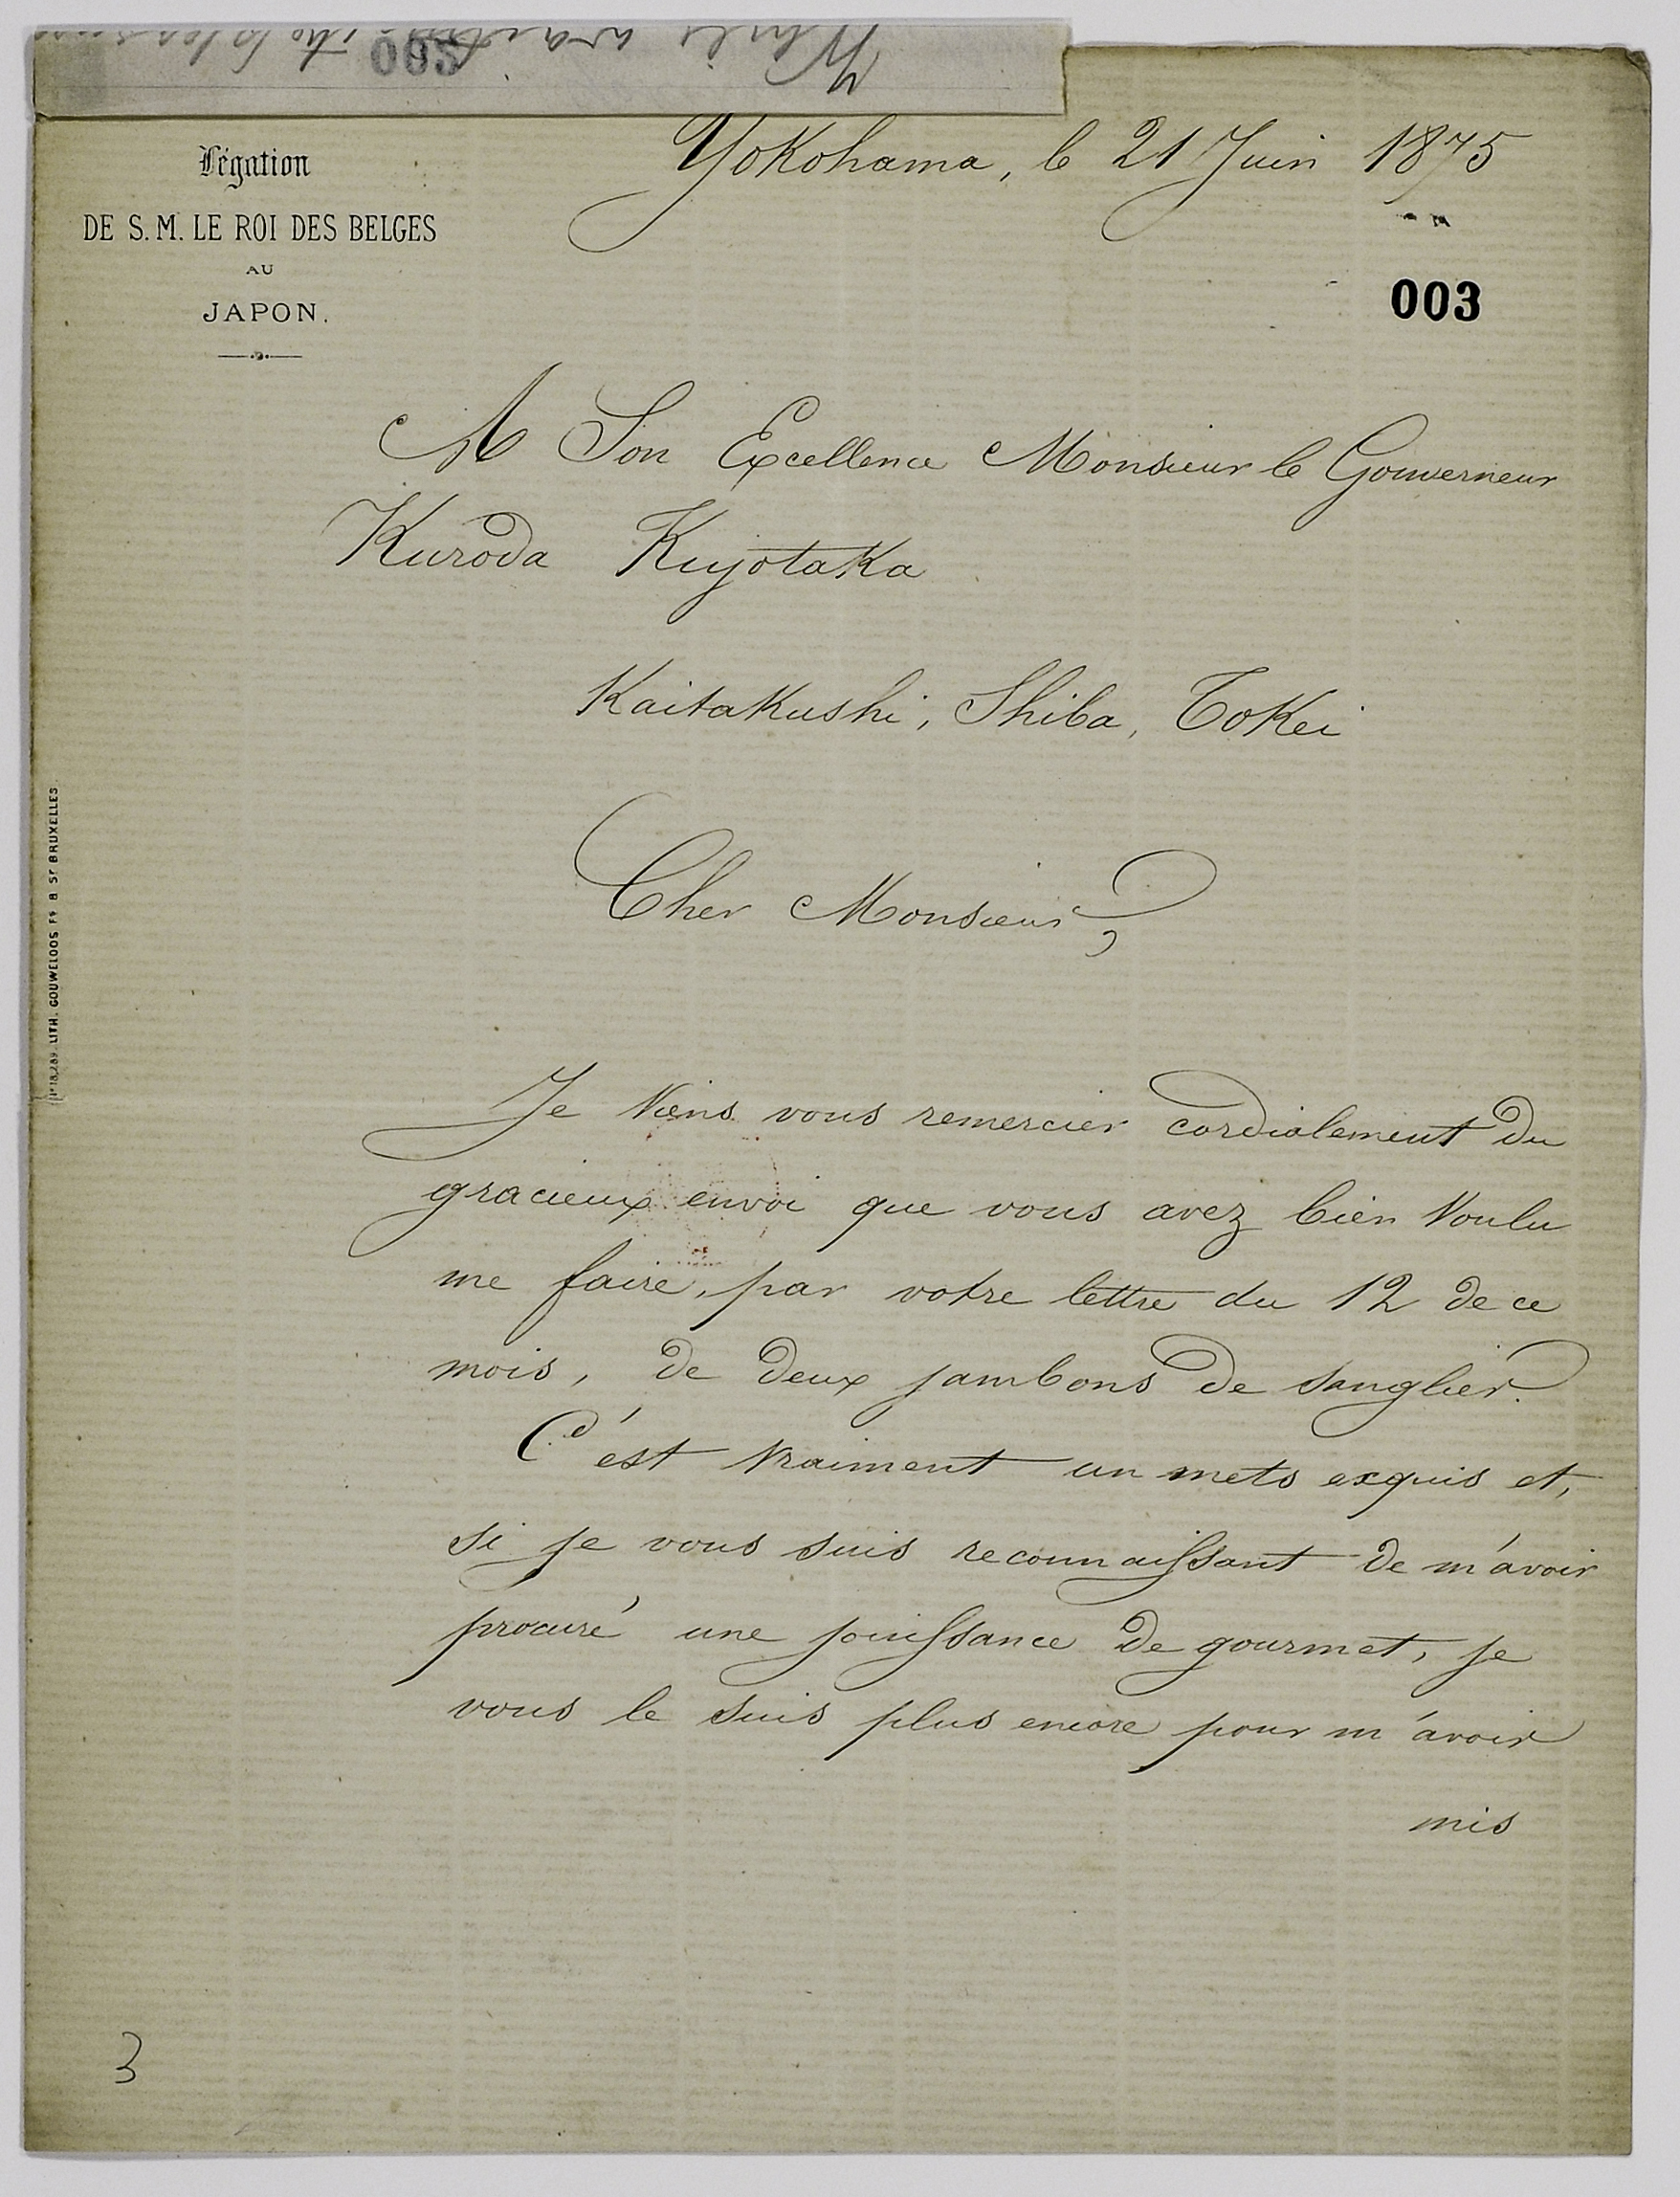 Légation
DE S. M. LE ROI DES BELGES
AU
JAPON.
Yokohama, le 21 Juin 1875
003
A Son Excellence Monsieur le Gouverneur
Kuroda Kujotaka
Kaitakushi, Shiba, Tokei
Cher Monsieur,
Je viens vous remercier cordialement du
gracieux envoi que vous avez bien voulu
me faire, par votre lettre du 12 de ce
mois, de deux jambons de sanglier.
C'est vraiment un mets exquis et,
si je vous suis reconnaissant de m'avoir
procuré une jouissance de gourmet, je
vous le suis plus encore pour m'avoir
mis
LITH. GOUWELOOS Fs & Sr BRUXELLES
3